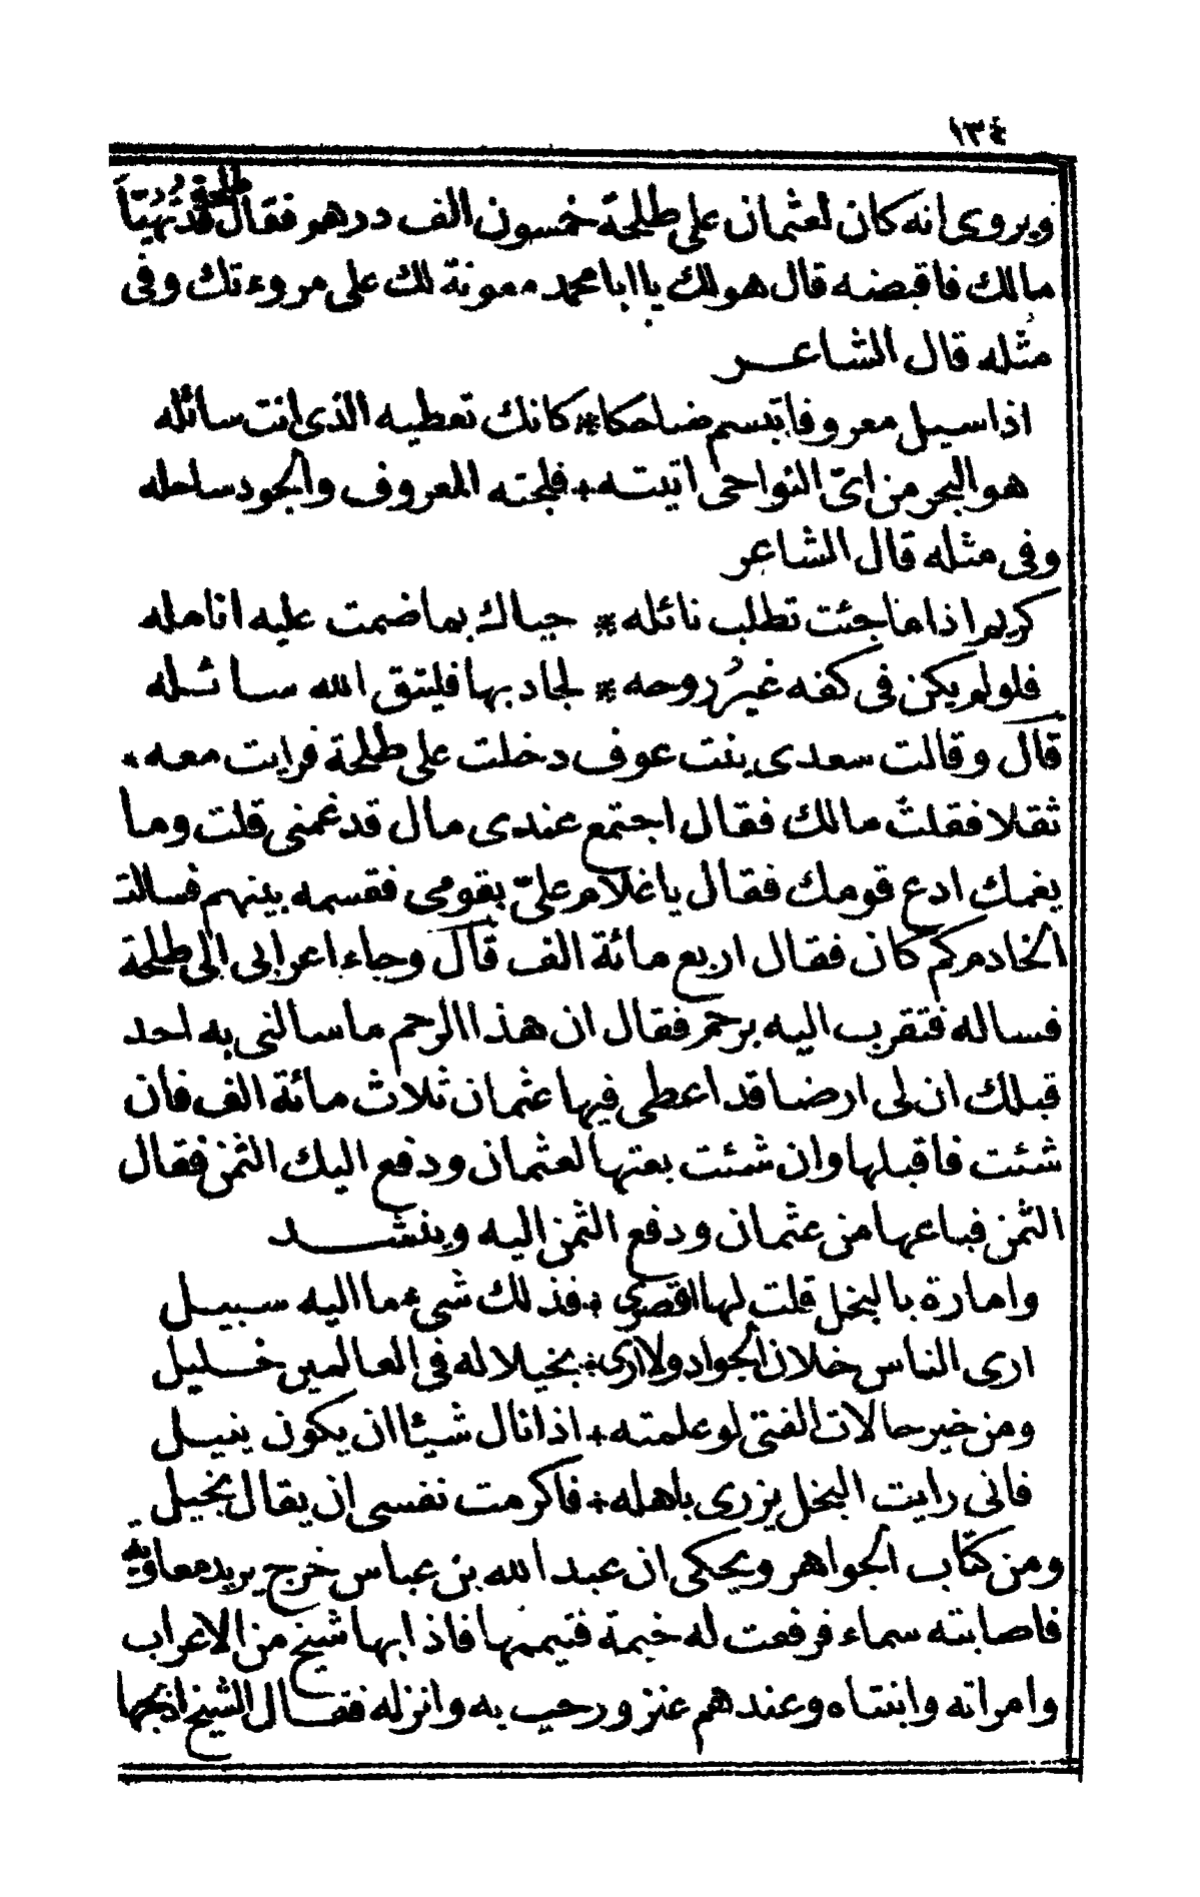 ١٣٤
ويروى انه كان لعثمان على طلحة خمسون الف درهم فقال طلحة قد تهيّأ
مالك فاقبضه قال هو لك يا ابا محمد معونة لك على مروءتك وفى
مثله قال الشاعر
اذا سيل معروفا تبسم ضاحكا * كانك تعطيه الذى انت سائله
هو البحر من اىّ النواحى اتيته * فلجته المعروف والجود ساحله
وفى مثله قال الشاعر
كريم اذا ما جئت تطلب نائله * حباك بما ضمت عليه انامله
فلو لم يكن فى كفه غيرُ روحه * لجاد بها فليتق الله سائله
قال وقالت سعدى بنت عوف دخلت على طلحة فرايت معه
ثقلا فقلت مالك فقال اجتمع عندى مال قد غمنى قلت وما
يغمك ادع قومك فقال يا غلام علىّ بقومى فقسمه بينهم فسالت
الخادم كم كان فقال اربع مائة الف قال وجاء اعرابى الى طلحة
فساله فتقرب اليه برحم فقال ان هذا الرحم ما سالنى به احد
قبلك ان لى ارضا قد اعطى فيها عثمان ثلاث مائة الف فان
شئت فاقبلها وان شئت بعتها لعثمان ودفع اليك الثمن فقال
الثمن فباعها من عثمان ودفع الثمن اليه وينشد
وامارة بالبخل قلت لها اقصرى * فذلك شىء ما اليه سبيل
ارى الناس خلان الجواد ولا ارى * بخيلا له فى العالمين خليل
ومن خير حالات الفتى لو علمته * اذا نال شيئا ان يكون ينيل
فانى رايت البخل يزرى باهله * فاكرمت نفسى ان يقال بخيل
ومن كتاب الجواهر ويحكى ان عبد الله بن عباس خرج يريد معاوية
فاصابته سماء فرفعت له خيمة فتيممها فاذا بها شيخ من الاعراب
وامراته وابنتاه وعندهم عنز ورحب به وانزله فقال الشيخ اذبحها